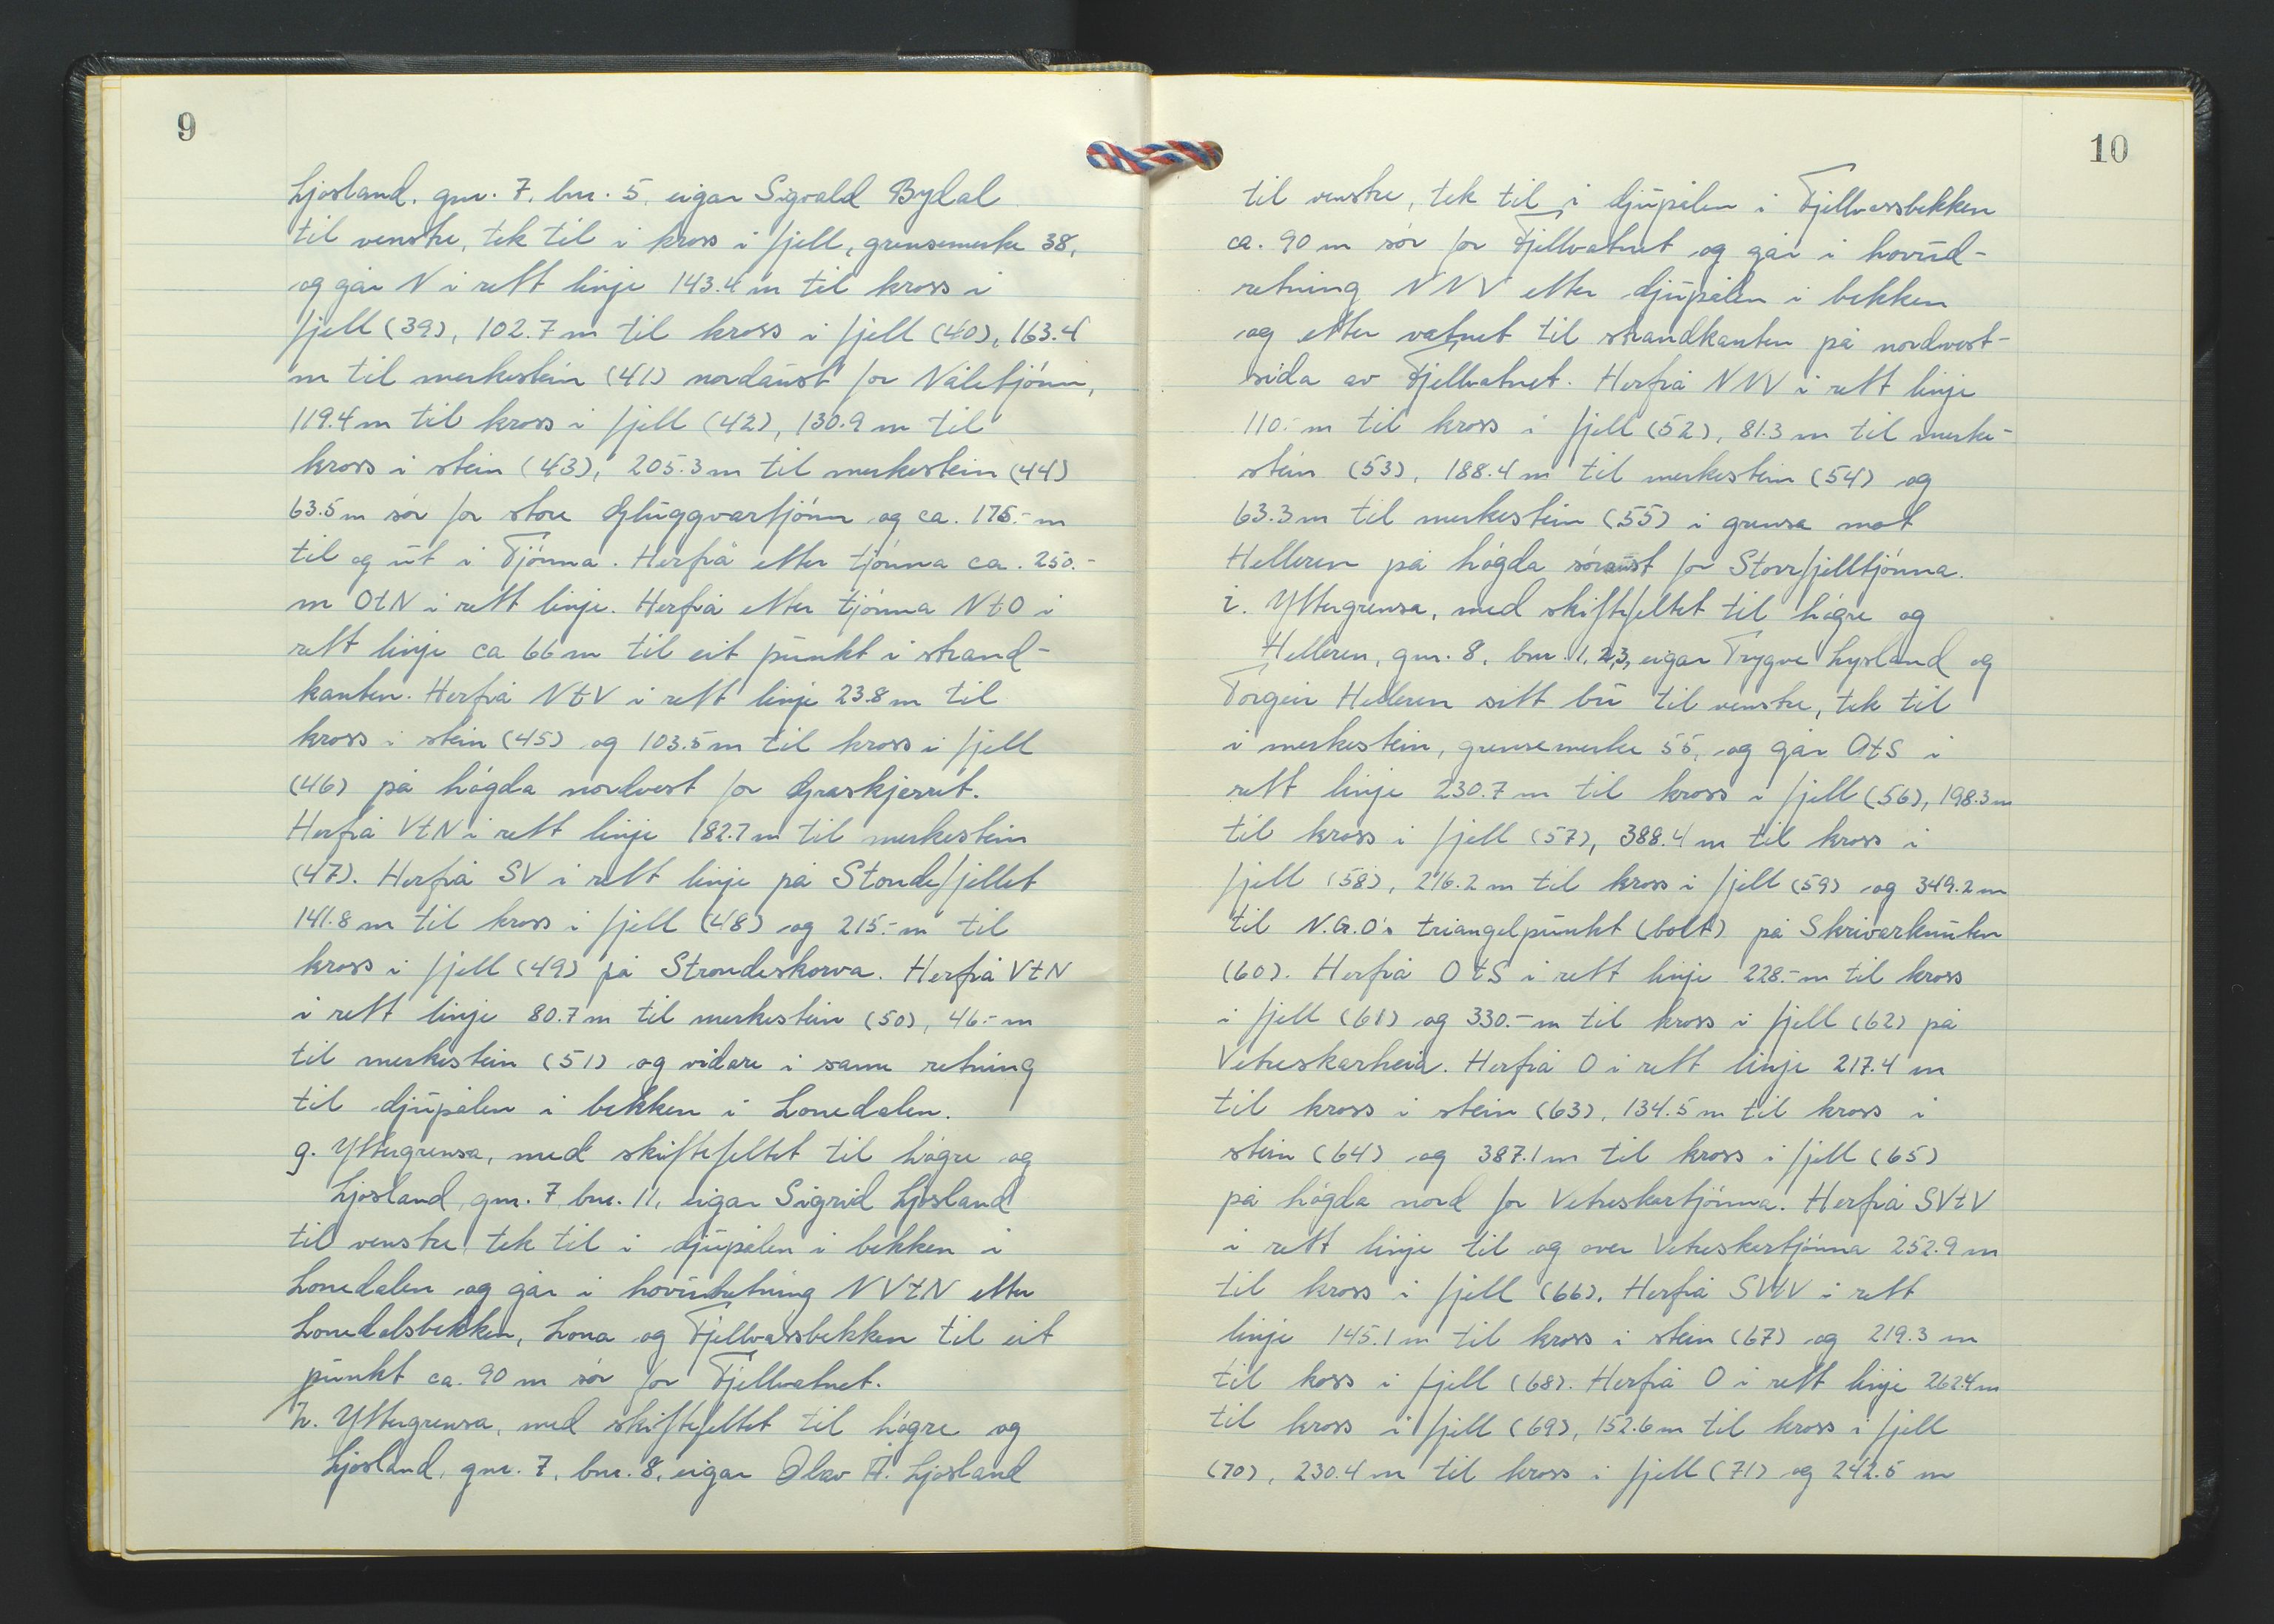 9
Ljosland, gnr. 7, bnr. 5, eigar Sigvald Bydal
til venstre, tek til i kross i fjell, grensemerke 38,
og går N i rett linje 143.4 m til kross i
fjell (39), 102.7 m til kross i fjell (40), 163.4
m til merkestein (41) nordaust for Nåletjønn,
119.4 m til kross i fjell (42), 130.9 m til
kross i stein (43), 205.3 m til merkestein (44)
63.5 m sør for store Gluggvartjønn og ca. 175.- m
til og ut i Tjønna. Herfrå etter tjønna ca. 250.-
m OtN i rett linje. Herfrå etter tjønna NtO i
rett linje ca 66 m til eit punkt i strand-
kanten. Herfrå NtV i rett linje 23.8 m til
kross i stein (45) og 103.5 m til kross i fjell
(46) på høgda nordvest for Graskjerrit.
Herfrå VtN i rett linje 182.7 m til merkestein
(47). Herfrå SV i rett linje på Stondefjellet
141.8 m til kross i fjell (48) og 215.- m til
kross i fjell (49) på Strondeskorva. Herfrå VtN
i rett linje 80.7 m til merkestein (50), 46.- m
til merkestein (51) og vidare i same retning
til djupålen i bekken i Lonedalen.
g. Yttergrensa, med skiftefeltet til høgre og
Ljosland, gnr. 7, bnr. 11, eigar Sigrid Ljosland
til venstre, tek til i djupålen i bekken i
Lonedalen og går i hovudretning NVtN etter
Lonedalsbekken, Lona og Fjellvassbekken til eit
punkt ca. 90 m sør for Fjellvatnet.
h. Yttergrensa, med skiftefeltet til høgre og
Ljosland, gnr. 7, bnr. 8, eigar Olav A. Ljosland
10
til venstre, tek til i djupålen i Fjellvassbekken
ca. 90 m sør for Fjellvatnet og går i hovud-
retning NNV etter djupålen i bekken
og etter vatnet til strandkanten på nordvest-
sida av Fjellvatnet. Herfrå NNV i rett linje
110.- m til kross i fjell (52), 81.3 m til merke-
stein (53), 188.4 m til merkestein (54) og
63.3 m til merkestein (55) i grensa mot
Helleren på høgda søraust for Storrfjelltjønna.
i. Yttergrensa, med skiftefeltet til høgre og
Helleren, gnr. 8, bnr. 1, 2, 3, eigar Trygve Lysland og
Torgeir Helleren sitt bu til venstre, tek til
i merkestein, grensemerke 55, og går OtS i
rett linje 230.7 m til kross i fjell (56), 198.3 m
til kross i fjell (57), 388.4 m til kross i
fjell (58), 216.2 m til kross i fjell (59) og 349.2 m
til N.G.O's triangelpunkt (bolt) på Skrivarknuten
(60). Herfrå OtS i rett linje 228.- m til kross
i fjell (61) og 330.- m til kross i fjell (62) på
Vetreskarheia. Herfrå O i rett linje 217.4 m
til kross i stein (63), 134.5 m til kross i
stein (64) og 387.1 m til kross i fjell (65)
på høgda nord for Vetreskartjønna. Herfrå SVtV
i rett linje til og over Vetreskartjønna 252.9 m
til kross i fjell (66). Herfrå SVtV i rett
linje 145.1 m til kross i stein (67) og 219.3 m
til koss i fjell (68). Herfrå O i rett linje 262.4 m
til kross i fjell (69), 152.6 m til kross i fjell
(70), 230.4 m til kross i fjell (71) og 242.5 m